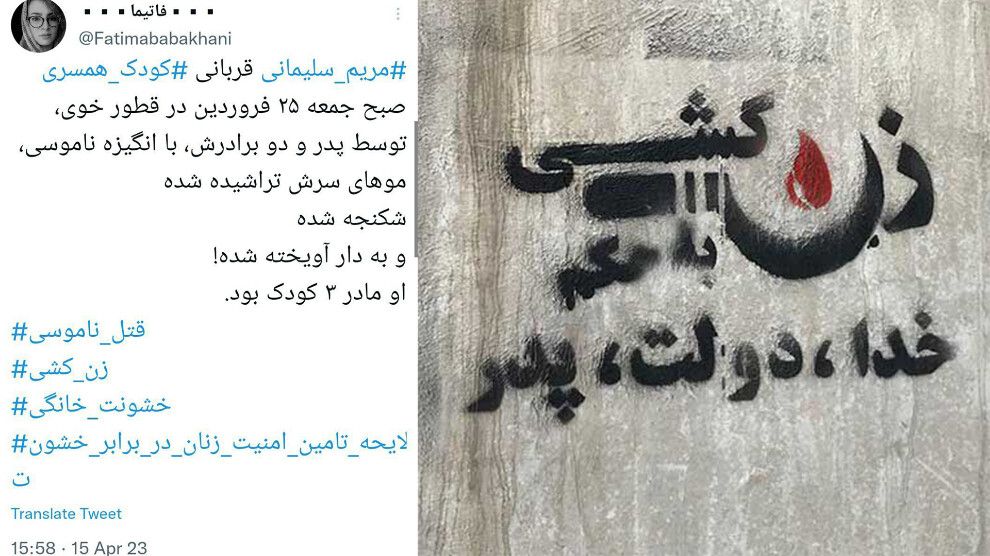 ▪ ▪ ▪ فاتیما ▪ ▪ ▪
@Fatimababakhani
#مریم_سلیمانی قربانی #کودک_همسری
صبح جمعه ۲۵ فروردین در قطور خوی،
توسط پدر و دو برادرش، با انگیزه ناموسی،
موهای سرش تراشیده شده
شکنجه شده
و به دار آویخته شده!
او مادر ۳ کودک بود.
#قتل_ناموسی
#زن_کشی
#خشونت_خانگی
#لایحه_تامین_امنیت_زنان_در_برابر_خشون
ت
Translate Tweet
15:58 · 15 Apr 23
زن کشی
به حکم
خدا، دولت، پدر